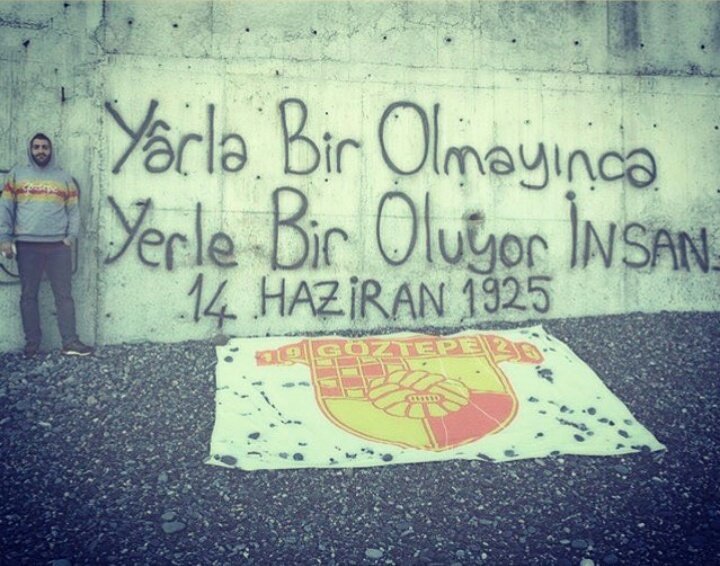 Yârla Bir Olmayınca
Yerle Bir Oluyor İNSAN
14 HAZİRAN 1925
19 GÖZTEPE 25